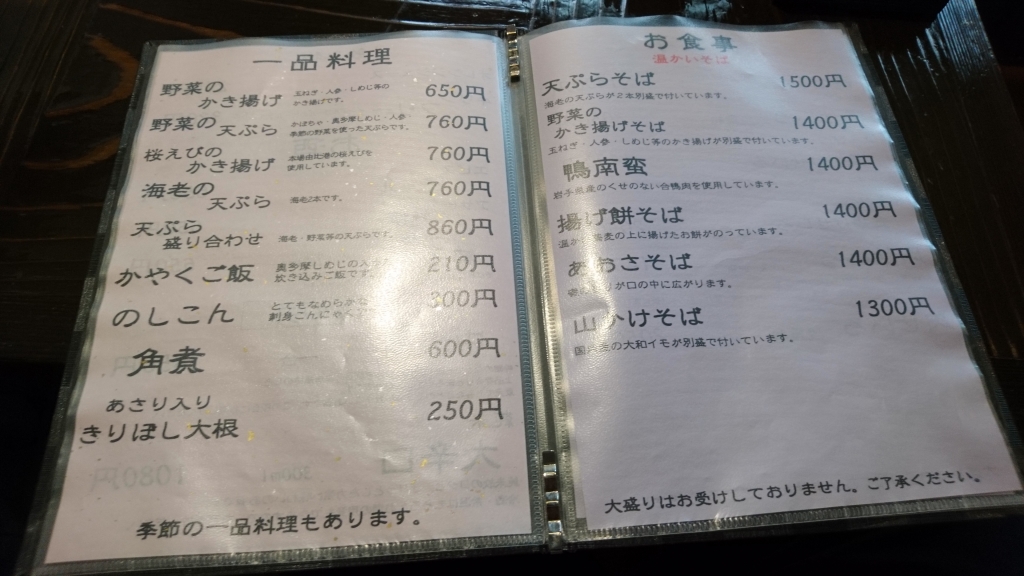 一品料理
野菜の
かき揚げ
玉ねぎ・人参・しめじ等の
かき揚げです。
650円
野菜の
天ぷら
かぼちゃ・奥多摩しめじ・人参・
季節の野菜を使った天ぷらです。
760円
桜えびの
かき揚げ
本場由比港の桜えびを
使用しています。
760円
海老の
天ぷら
海老2本です。
760円
天ぷら
盛り合わせ
海老・野菜等の天ぷらです。
860円
かやくご飯
奥多摩しめじの入った
炊き込みご飯です。
210円
のしこん
とてもなめらかな
刺身こんにゃく
300円
角煮
600円
あさり入り
きりぼし大根
250円
季節の一品料理もあります。
お食事
温かいそば
天ぷらそば
1500円
海老の天ぷらが2本別盛で付いています。
野菜の
かき揚げそば
1400円
玉ねぎ・人参・しめじ等のかき揚げが別盛で付いています。
鴨南蛮
1400円
岩手県産のくせのない合鴨肉を使用しています。
揚げ餅そば
1400円
温か 蕎麦の上に揚げたお餅がのっています。
あおさそば
1400円
りが口の中に広がります。
山かけそば
1300円
国産の大和イモが別盛で付いています。
大盛りはお受けしておりません。ご了承ください。